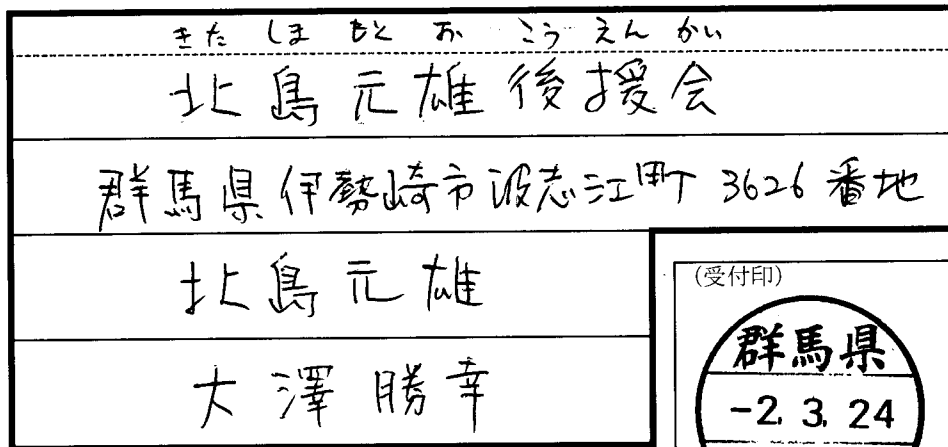 きた しま もと お こう えん かい
北島元雄後援会
群馬県伊勢崎市波志江町 3626 番地
北島元雄
大澤勝幸
(受付印)
群馬県
-2. 3. 24